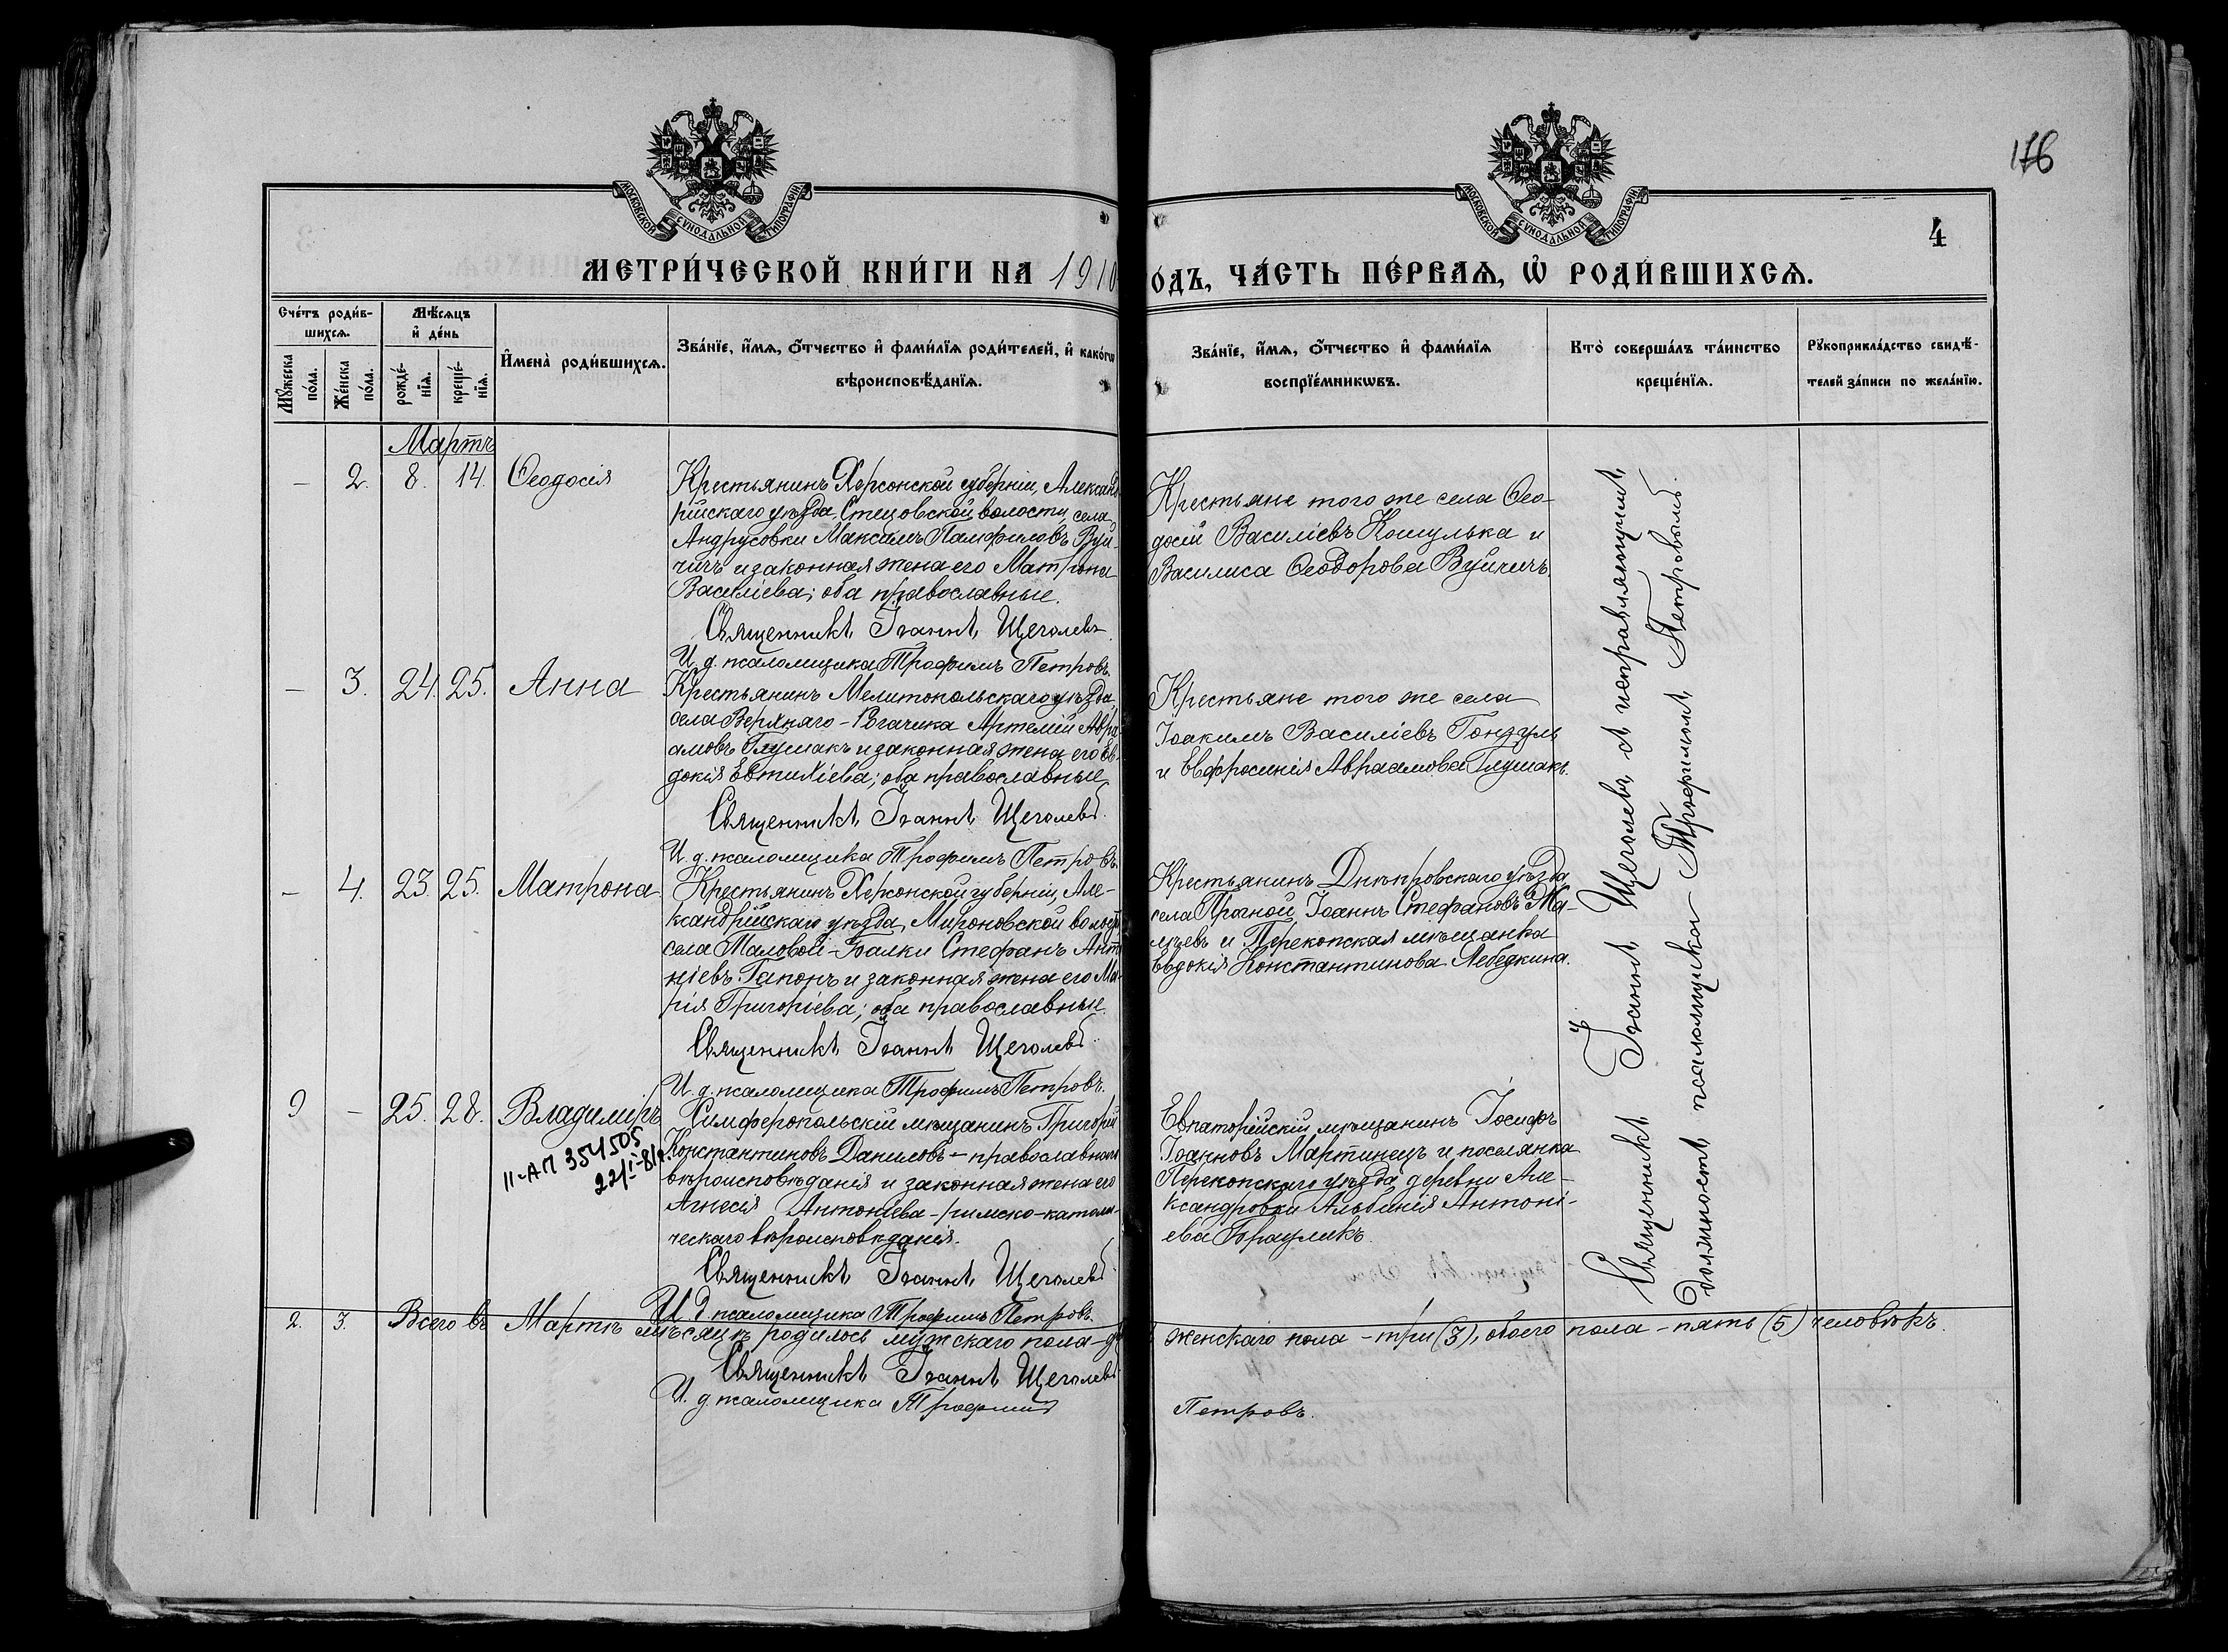 176
МОСКОВСКОЙ СѴНОДАЛЬНОЙ ТИПОГРАФІИ
МОСКОВСКОЙ СѴНОДАЛЬНОЙ ТИПОГРАФІИ
4
МЕТРИ́ЧЕСКОЙ КНИ́ГИ НА 1910
ОДЪ, ЧА́СТЬ ПЕ́РВАѦ, Ѡ҆ РОДИ́ВШИХСѦ.
Сче́тъ роди́в-
шихсѧ.
Мꙋ́жеска по́ла.
Же́нска по́ла.
Мѣ́сѧцъ
и҆ де́нь
рожде́-
нїѧ.
креще́-
нїѧ.
И҆мена̀ роди́вшихсѧ.
Зва́нїе, и҆́мѧ, о҆́тчество и҆ фами́лїѧ роди́телей, и҆ како́гѡ
вѣроисповѣ́данїѧ.
Зва́нїе, и҆́мѧ, о҆́тчество и҆ фами́лїѧ
воспрїе́мникѡвъ.
Кто̀ соверша́лъ та́инство
креще́нїѧ.
Рꙋкоприкла́дство свидѣ́-
телей за́писи по жела́нїю.
Мартъ
— 2. 8. 14. Ѳеодосія
Крестьянинъ Херсонской губерніи, Александ
рійскаго уѣзда, Стецовской волости, села
Андрусовки Максимъ Памфиловъ Вуй-
чичъ и законная жена его Матрона
Василіева; оба православные.
Священникъ Іоаннъ Щеголевъ
И. д. псаломщика Трофимъ Петровъ.
Крестьяне того же села Ѳео-
досій Василіевъ Кошулька и
Василиса Ѳеодорова Вуйчичъ.
— 3. 24. 25. Анна
Крестьянинъ Мелитопольскаго уѣзда,
села Верхняго-Рогачика Артемій Авра
амовъ Глушакъ и законная жена его Ев-
докія Евтихіева; оба православные
Священникъ Іоаннъ Щеголевъ.
И. д. псаломщика Трофимъ Петровъ.
Крестьяне того же села
Іоакимъ Василіевъ Гондуль
и Евфросинія Авраамова Глушакъ.
— 4. 23. 25. Матрона
Крестьянинъ Херсонской губерніи, Але-
ксандрійскаго уѣзда, Мироновской волост
села Маловой-Балки Стефанъ Анто
ніевъ Гапонъ и законная жена его Ма-
рія Григоріева; оба православные.
Священникъ Іоаннъ Щеголевъ.
И. д. псаломщика Трофимъ Петровъ.
Крестьянинъ Днѣпровскаго уѣзда
села Прогной Іоаннъ Стефановъ Ма-
лѣевъ и Перекопская мѣщанка
Евдокія Константинова Лебедкина.
9 — 25. 28. Владиміръ
II-АП 354505
Симферопольскій мѣщанинъ Григорій
Константиновъ Даниловъ - православнаго
вѣроисповѣданія и законная жена его
Агнесія Антоніева - римско-католи-
ческаго вѣроисповѣданія.
Священникъ Іоаннъ Щеголевъ
И. д. псаломщика Трофимъ Петровъ.
Евпаторійскій мѣщанинъ Іосифъ
Іоанновъ Мартинецъ и поселянка
Перекопскаго уѣзда деревни Але-
ксандровки Альбинія Антоні-
ева Браулекъ.
Священникъ Іоаннъ Щеголевъ съ исправляющимъ
должность псаломщика Трофимомъ Петровымъ.
2. 3. Всего въ Мартѣ мѣсяцѣ родилось мужскаго пола - дв
женскаго пола - три (3), обоего пола - пять (5) человѣкъ.
Священникъ Іоаннъ Щеголевъ
И. д. псаломщика Трофимъ
Петровъ.